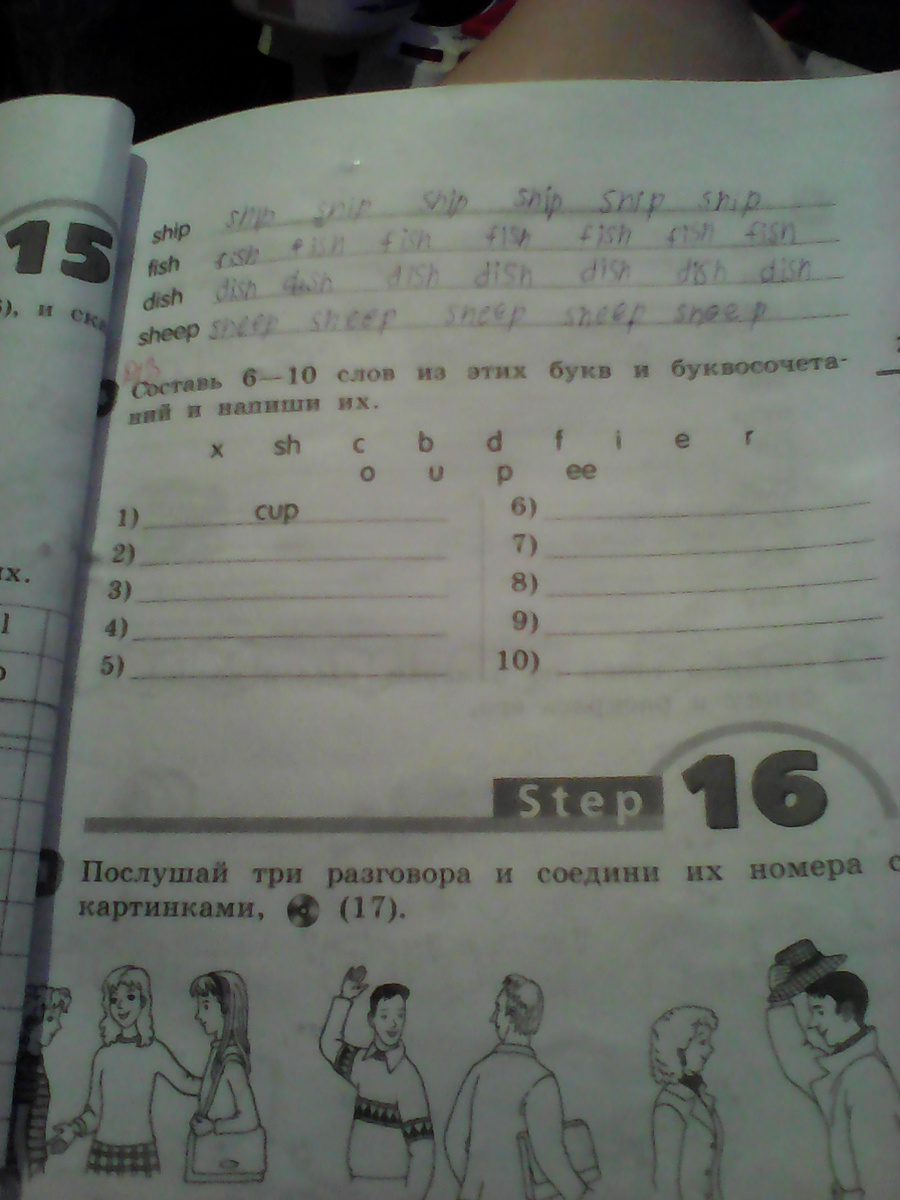 15
ship ship ship ship ship ship ship
fish fish fish fish fish fish fish fish
dish dish dish dish dish dish dish dish
sheep sheep sheep sheep sheep sheep
), и ска
Составь 6—10 слов из этих букв и буквосочета-
ний и напиши их.
x sh c b d f i e r
o u p ee
1) cup
2)
3)
4)
5)
6)
7)
8)
9)
10)
их.
Step 16
Послушай три разговора и соедини их номера с
картинками, (17).